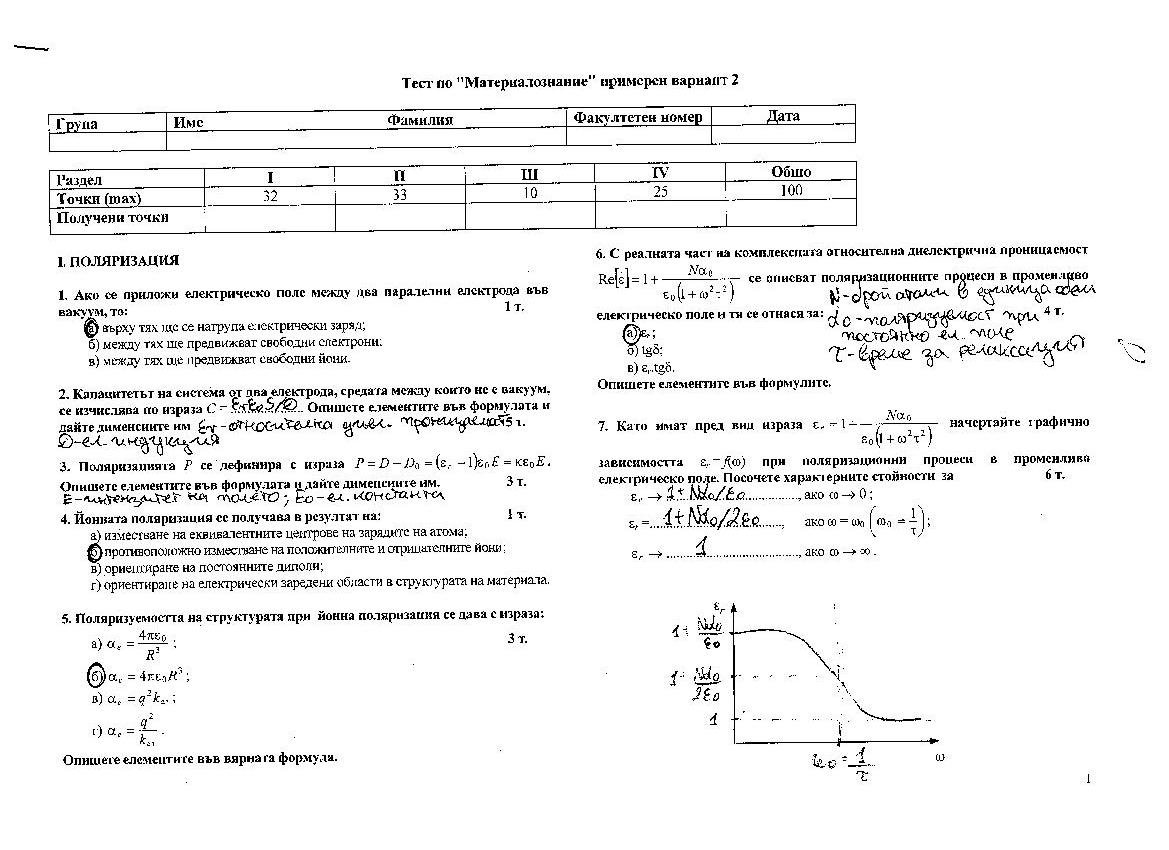 Тест по "Материалознание" примерен вариант 2
Група Име Фамилия Факултетен номер Дата
Раздел I II III IV Общо
Точки (max) 32 33 10 25 100
Получени точки
I. ПОЛЯРИЗАЦИЯ
1. Ако се приложи електрическо поле между два паралелни електрода във
вакуум, то: 1 т.
а) върху тях ще се натрупа електрически заряд;
б) между тях ще предвижват свободни електрони;
в) между тях ще предвижват свободни йони.
2. Капацитетът на система от два електрода, средата между които не е вакуум,
се изчислява по израза C = εrε0S/D. Опишете елементите във формулата и
дайте дименсиите им εr - относителна диел. проницаемост 5 т.
D - ел. индукция
3. Поляризацията P се дефинира с израза P = D − D₀ = (εr −1)ε₀E = κε₀E.
Опишете елементите във формулата и дайте дименсиите им. 3 т.
E - интензитет на полето; ε0 - ел. константа
4. Йонната поляризация се получава в резултат на: 1 т.
а) изместване на еквивалентните центрове на зарядите на атома;
б) противоположно изместване на положителните и отрицателните йони;
в) ориентиране на постоянните диполи;
г) ориентиране на електрически заредени области в структурата на материала.
5. Поляризуемостта на структурата при йонна поляризация се дава с израза:
а) αe = 4πε₀/R³ ; 3 т.
б) αe = 4πε₀R³ ;
в) αe = q²kел ;
г) αe = q²/kел .
Опишете елементите във вярната формула.
6. С реалната част на комплексната относителна диелектрична проницаемост
Re[ε] = 1 + Nα₀/ε₀(1 + ω²τ²) се описват поляризационните процеси в променливо
N - брой атоми в единица обем
електрическо поле и тя се отнася за: 4 т.
α0 - поляризуемост при
постоянно ел. поле
τ - време за релаксация
а) εr ;
б) tgδ;
в) εr.tgδ.
Опишете елементите във формулите.
7. Като имат пред вид израза εr = 1 + Nα₀/ε₀(1 + ω²τ²) начертайте графично
зависимостта εr = f(ω) при поляризационни процеси в променливо
електрическо поле. Посочете характерните стойности за 6 т.
εr → 1+ Nα0/ε0 ............, ако ω → 0 ;
εr = ...1+Nα0/2ε0......, ако ω = ω₀ (ω₀ = 1/τ) ;
εr → ........1........, ако ω → ∞ .
εr
1+ Nα0/ε0
1+ Nα0/2ε0
1
ω0 = 1/τ
ω
1